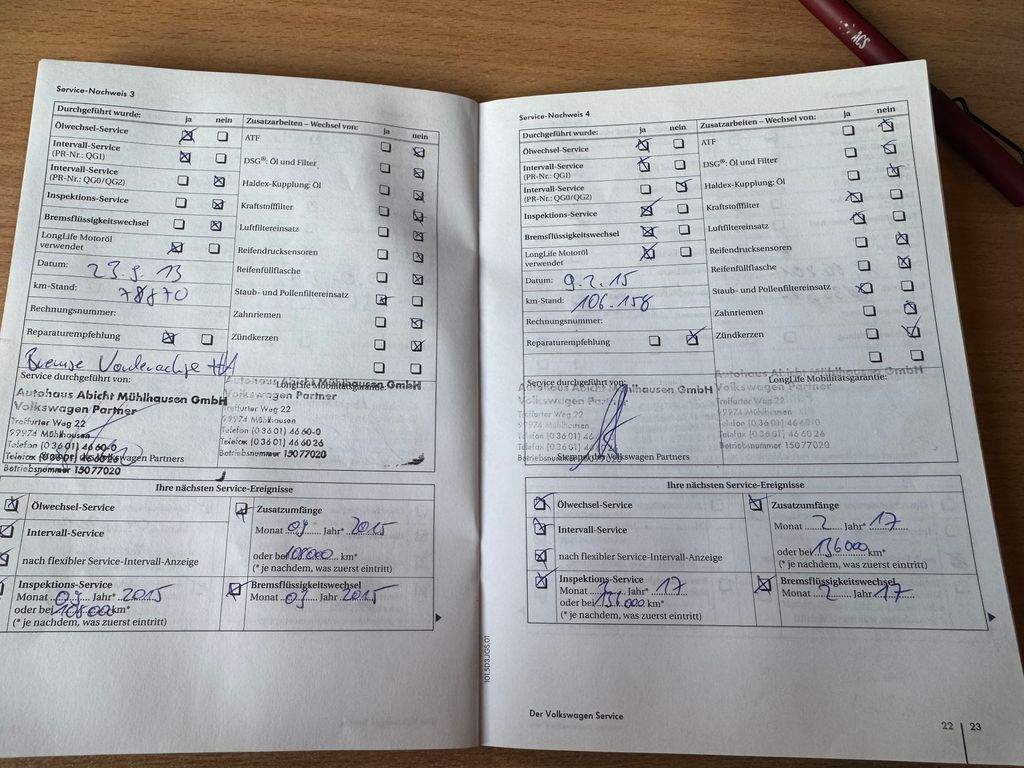 ACS
Service-Nachweis 3
Durchgeführt wurde: ja nein
Ölwechsel-Service
Intervall-Service
(PR-Nr.: QG1)
Intervall-Service
(PR-Nr.: QG0/QG2)
Inspektions-Service
Bremsflüssigkeitswechsel
LongLife Motoröl
verwendet
Datum: 23.9.13
km-Stand: 78870
Rechnungsnummer:
Reparaturempfehlung
Bremse Vorderachse HA
Zusatzarbeiten – Wechsel von: ja nein
ATF
DSG®: Öl und Filter
Haldex-Kupplung: Öl
Kraftstofffilter
Luftfiltereinsatz
Reifendrucksensoren
Reifenfüllflasche
Staub- und Pollenfiltereinsatz
Zahnriemen
Zündkerzen
Service durchgeführt von:
Autohaus Abicht Mühlhausen GmbH
Volkswagen Partner
Treffurter Weg 22
99974 Mühlhausen
Telefon (0 36 01) 46 60-0
Telefax (0 36 01) 46 60 26
Betriebsnummer 15077020
des Volkswagen Partners
LongLife Mobilitätsgarantie:
Autohaus Abicht Mühlhausen GmbH
Volkswagen Partner
Treffurter Weg 22
99974 Mühlhausen
Telefon (0 36 01) 46 60-0
Telefax (0 36 01) 46 60 26
Betriebsnummer 15077020
Ihre nächsten Service-Ereignisse
Ölwechsel-Service
Intervall-Service
nach flexibler Service-Intervall-Anzeige
Zusatzumfänge
Monat 09 Jahr* 2015
oder bei 108000 km*
(* je nachdem, was zuerst eintritt)
Inspektions-Service
Monat 09 Jahr* 2015
oder bei 108000 km*
(* je nachdem, was zuerst eintritt)
Bremsflüssigkeitswechsel
Monat 09 Jahr 2015
Service-Nachweis 4
Durchgeführt wurde: ja nein
Ölwechsel-Service
Intervall-Service
(PR-Nr.: QG1)
Intervall-Service
(PR-Nr.: QG0/QG2)
Inspektions-Service
Bremsflüssigkeitswechsel
LongLife Motoröl
verwendet
Datum: 9.2.15
km-Stand: 106.158
Rechnungsnummer:
Reparaturempfehlung
Zusatzarbeiten – Wechsel von: ja nein
ATF
DSG®: Öl und Filter
Haldex-Kupplung: Öl
Kraftstofffilter
Luftfiltereinsatz
Reifendrucksensoren
Reifenfüllflasche
Staub- und Pollenfiltereinsatz
Zahnriemen
Zündkerzen
Service durchgeführt von:
Autohaus Abicht Mühlhausen GmbH
Volkswagen Partner
Treffurter Weg 22
99974 Mühlhausen
Telefon (0 36 01) 46
Telefax (0 36 01) 46
Betriebsnummer 15077020
Stempel des Volkswagen Partners
LongLife Mobilitätsgarantie:
Autohaus Abicht Mühlhausen GmbH
Volkswagen Partner
Treffurter Weg 22
99974 Mühlhausen
Telefon (0 36 01) 46 60-0
Telefax (0 36 01) 46 60 26
Betriebsnummer 15077020
Ihre nächsten Service-Ereignisse
Ölwechsel-Service
Intervall-Service
nach flexibler Service-Intervall-Anzeige
Zusatzumfänge
Monat 2 Jahr* 17
oder bei 136000 km*
(* je nachdem, was zuerst eintritt)
Inspektions-Service
Monat 2 Jahr* 17
oder bei 136000 km*
(* je nachdem, was zuerst eintritt)
Bremsflüssigkeitswechsel
Monat 2 Jahr 17
101.5D3.JGS.01
Der Volkswagen Service
22 | 23